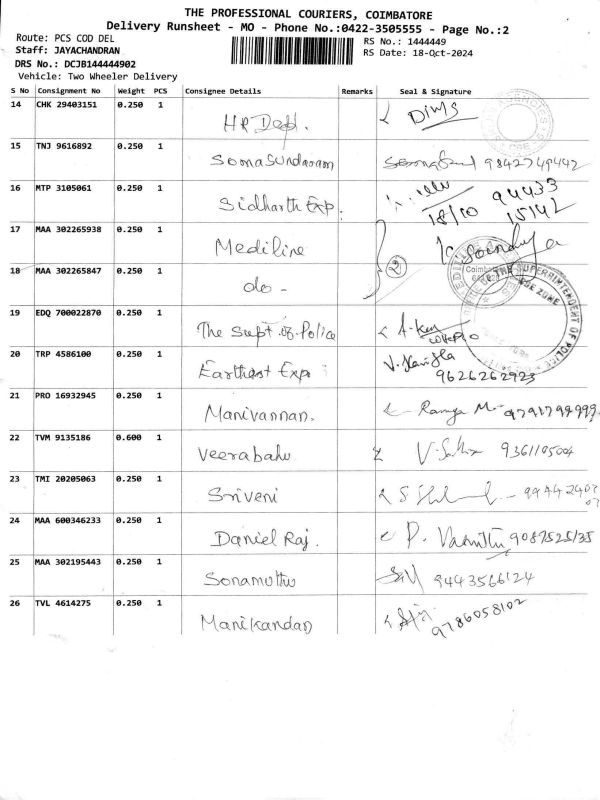 THE PROFESSIONAL COURIERS, COIMBATORE
Delivery Runsheet - MO - Phone No.:0422-3505555 - Page No.:2
Route: PCS COD DEL RS No.: 1444449
Staff: JAYACHANDRAN RS Date: 18-Oct-2024
DRS No.: DCJB144444902
Vehicle: Two Wheeler Delivery
S No Consignment No Weight PCS Consignee Details Remarks Seal & Signature
14 CHK 29403151 0.250 1 HR Dept. DIMS
15 TNJ 9616892 0.250 1 Somasundaram 9842749442
16 MTP 3105061 0.250 1 Sidharth Exp. 94433
18/10 15142
17 MAA 302265938 0.250 1 Mediline
2
18 MAA 302265847 0.250 1 do -
19 EDQ 700022870 0.250 1 The Supt of Police
SUPERINTENDENT OF POLICE
20 TRP 4586100 0.250 1 Earthest Exp
9626262923
21 PRO 16932945 0.250 1 Manivannan. Ramya M - 9791799999
22 TVM 9135186 0.600 1 Veerabahu 9361105004
23 TMI 20205063 0.250 1 Sriveni
24 MAA 600346233 0.250 1 Daniel Raj. P. 9087525135
25 MAA 302195443 0.250 1 Sonamuthu 9443566124
26 TVL 4614275 0.250 1 Manikandan 9786058102